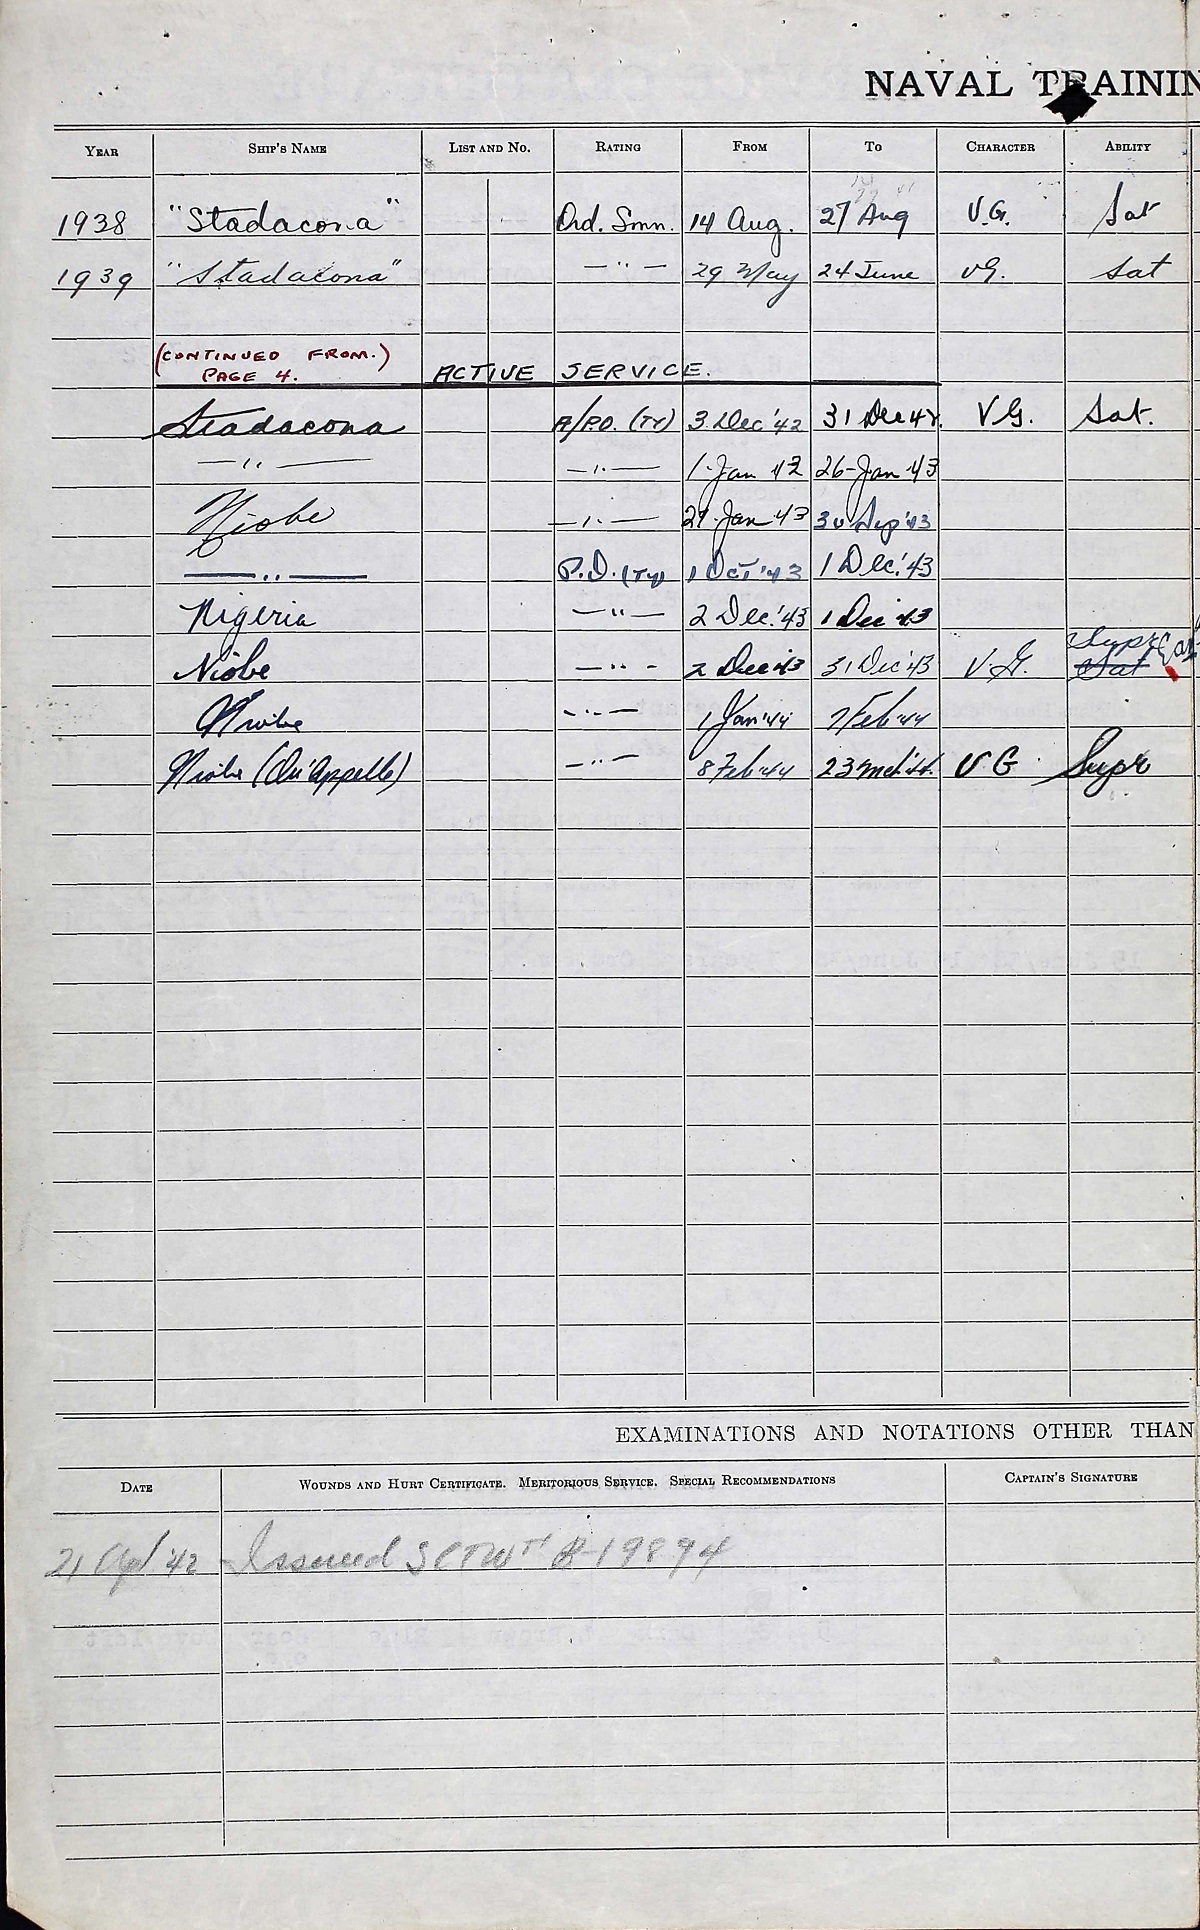 NAVAL TRAININ
YEAR SHIP'S NAME LIST AND NO. RATING FROM TO CHARACTER ABILITY
1938 "Stadacona" Ord. Smn. 14 Aug. 27 Aug V.G. Sat
1939 "Stadacona" — " — 29 May 24 June VG. Sat
(CONTINUED FROM.)
PAGE 4. ACTIVE SERVICE.
Stadacona A/P.O. (TY) 3 Dec '42 31 Dec 42. VG. Sat.
— " — — " — 1 Jan 42 26 Jan 43
Niobe — " — 27 Jan 43 30 Sep '43
— " — P.O. (TY) 1 OCT '43 1 Dec. '43
Nigeria — " — 2 Dec. '43 1 Dec 43
Supr
Niobe — " — 2 Dec 43 31 Dec '43 V.G. Sat
Niobe — " — 1 Jan '44 7 Feb '44
Niobe (Qu'Appelle) — " — 8 Feb '44 23 Mch '44. VG Supr
EXAMINATIONS AND NOTATIONS OTHER THAN
DATE WOUNDS AND HURT CERTIFICATE. MERITORIOUS SERVICE. SPECIAL RECOMMENDATIONS CAPTAIN'S SIGNATURE
21 Apl '42 Issued 19894